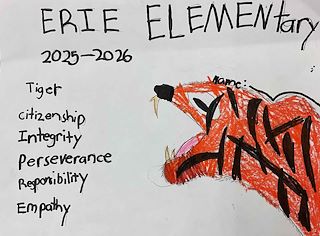 ERIE ELEMENtary
2025-2026
Name:
Tiger
Citizenship
Integrity
Perseverance
Responibility
Empathy